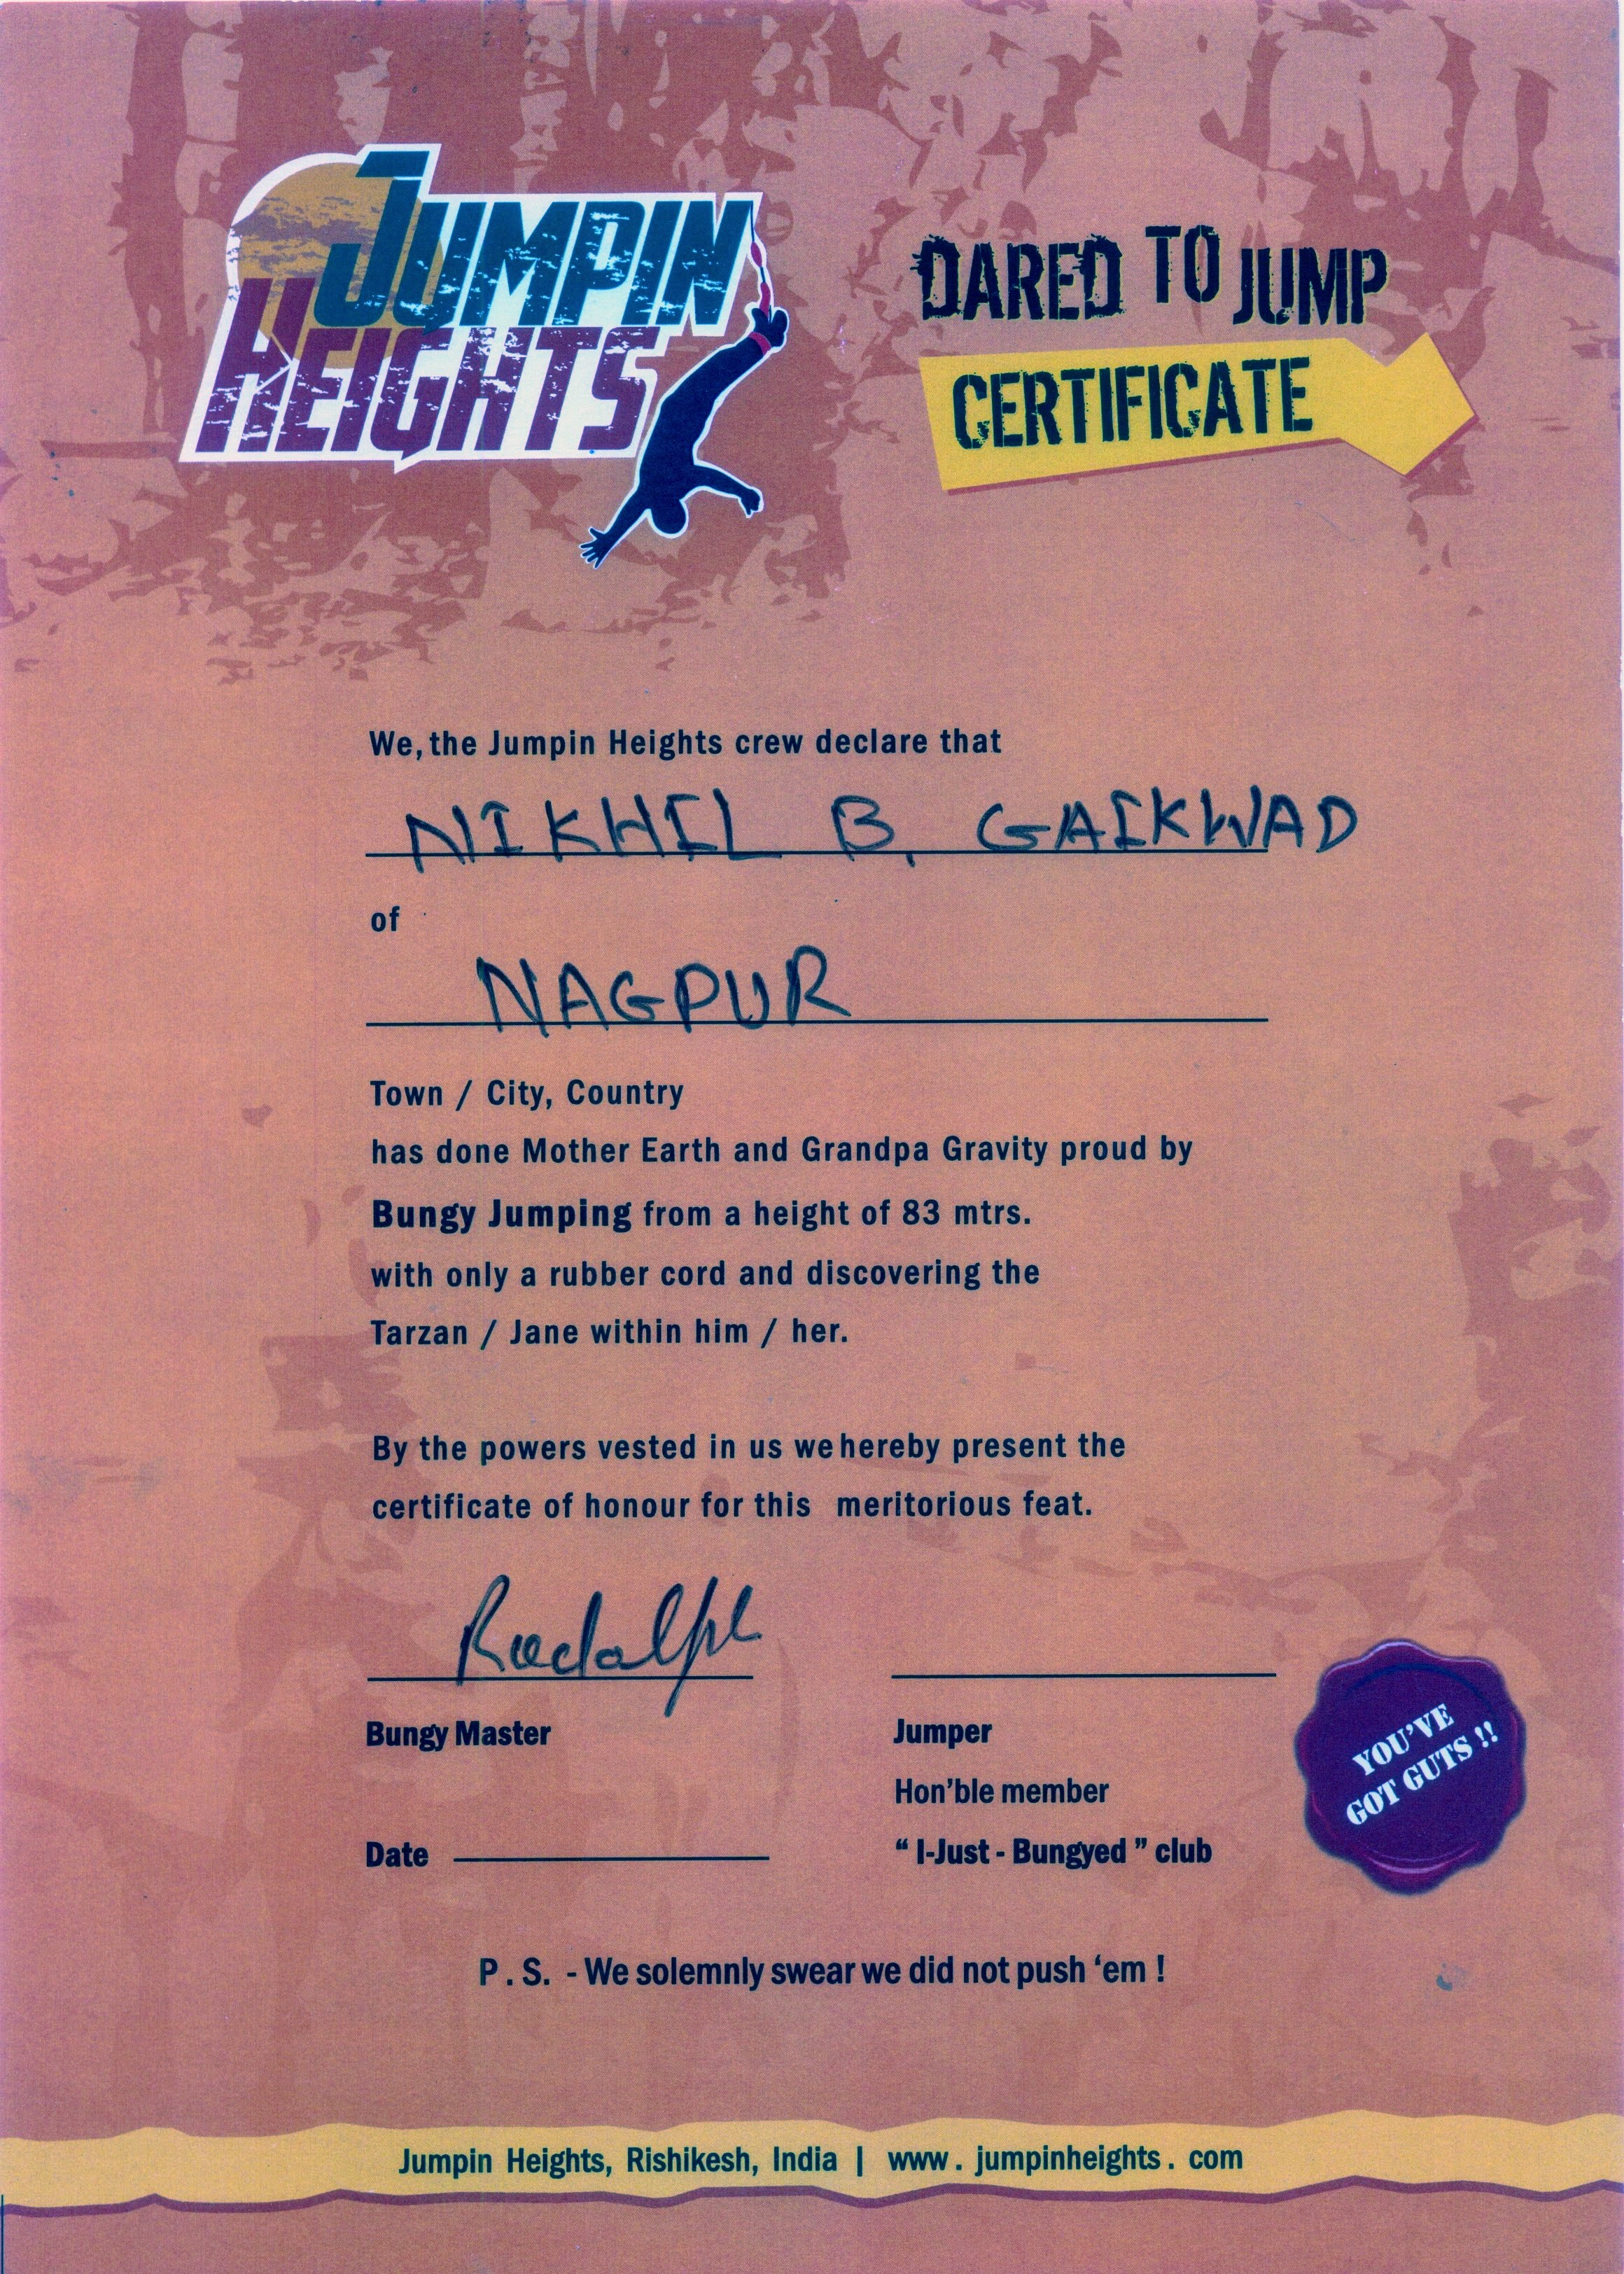 JUMPIN
HEIGHTS
DARED TO JUMP
CERTIFICATE
We, the Jumpin Heights crew declare that
NIKHIL B. GAIKWAD
of
NAGPUR
Town / City, Country
has done Mother Earth and Grandpa Gravity proud by
Bungy Jumping from a height of 83 mtrs.
with only a rubber cord and discovering the
Tarzan / Jane within him / her.
By the powers vested in us we hereby present the
certificate of honour for this meritorious feat.
Rudalph
Bungy Master
Jumper
Hon'ble member
Date
“ I-Just - Bungyed ” club
YOU'VE
GOT GUTS !!
P . S. - We solemnly swear we did not push ‘em !
Jumpin Heights, Rishikesh, India | www . jumpinheights . com